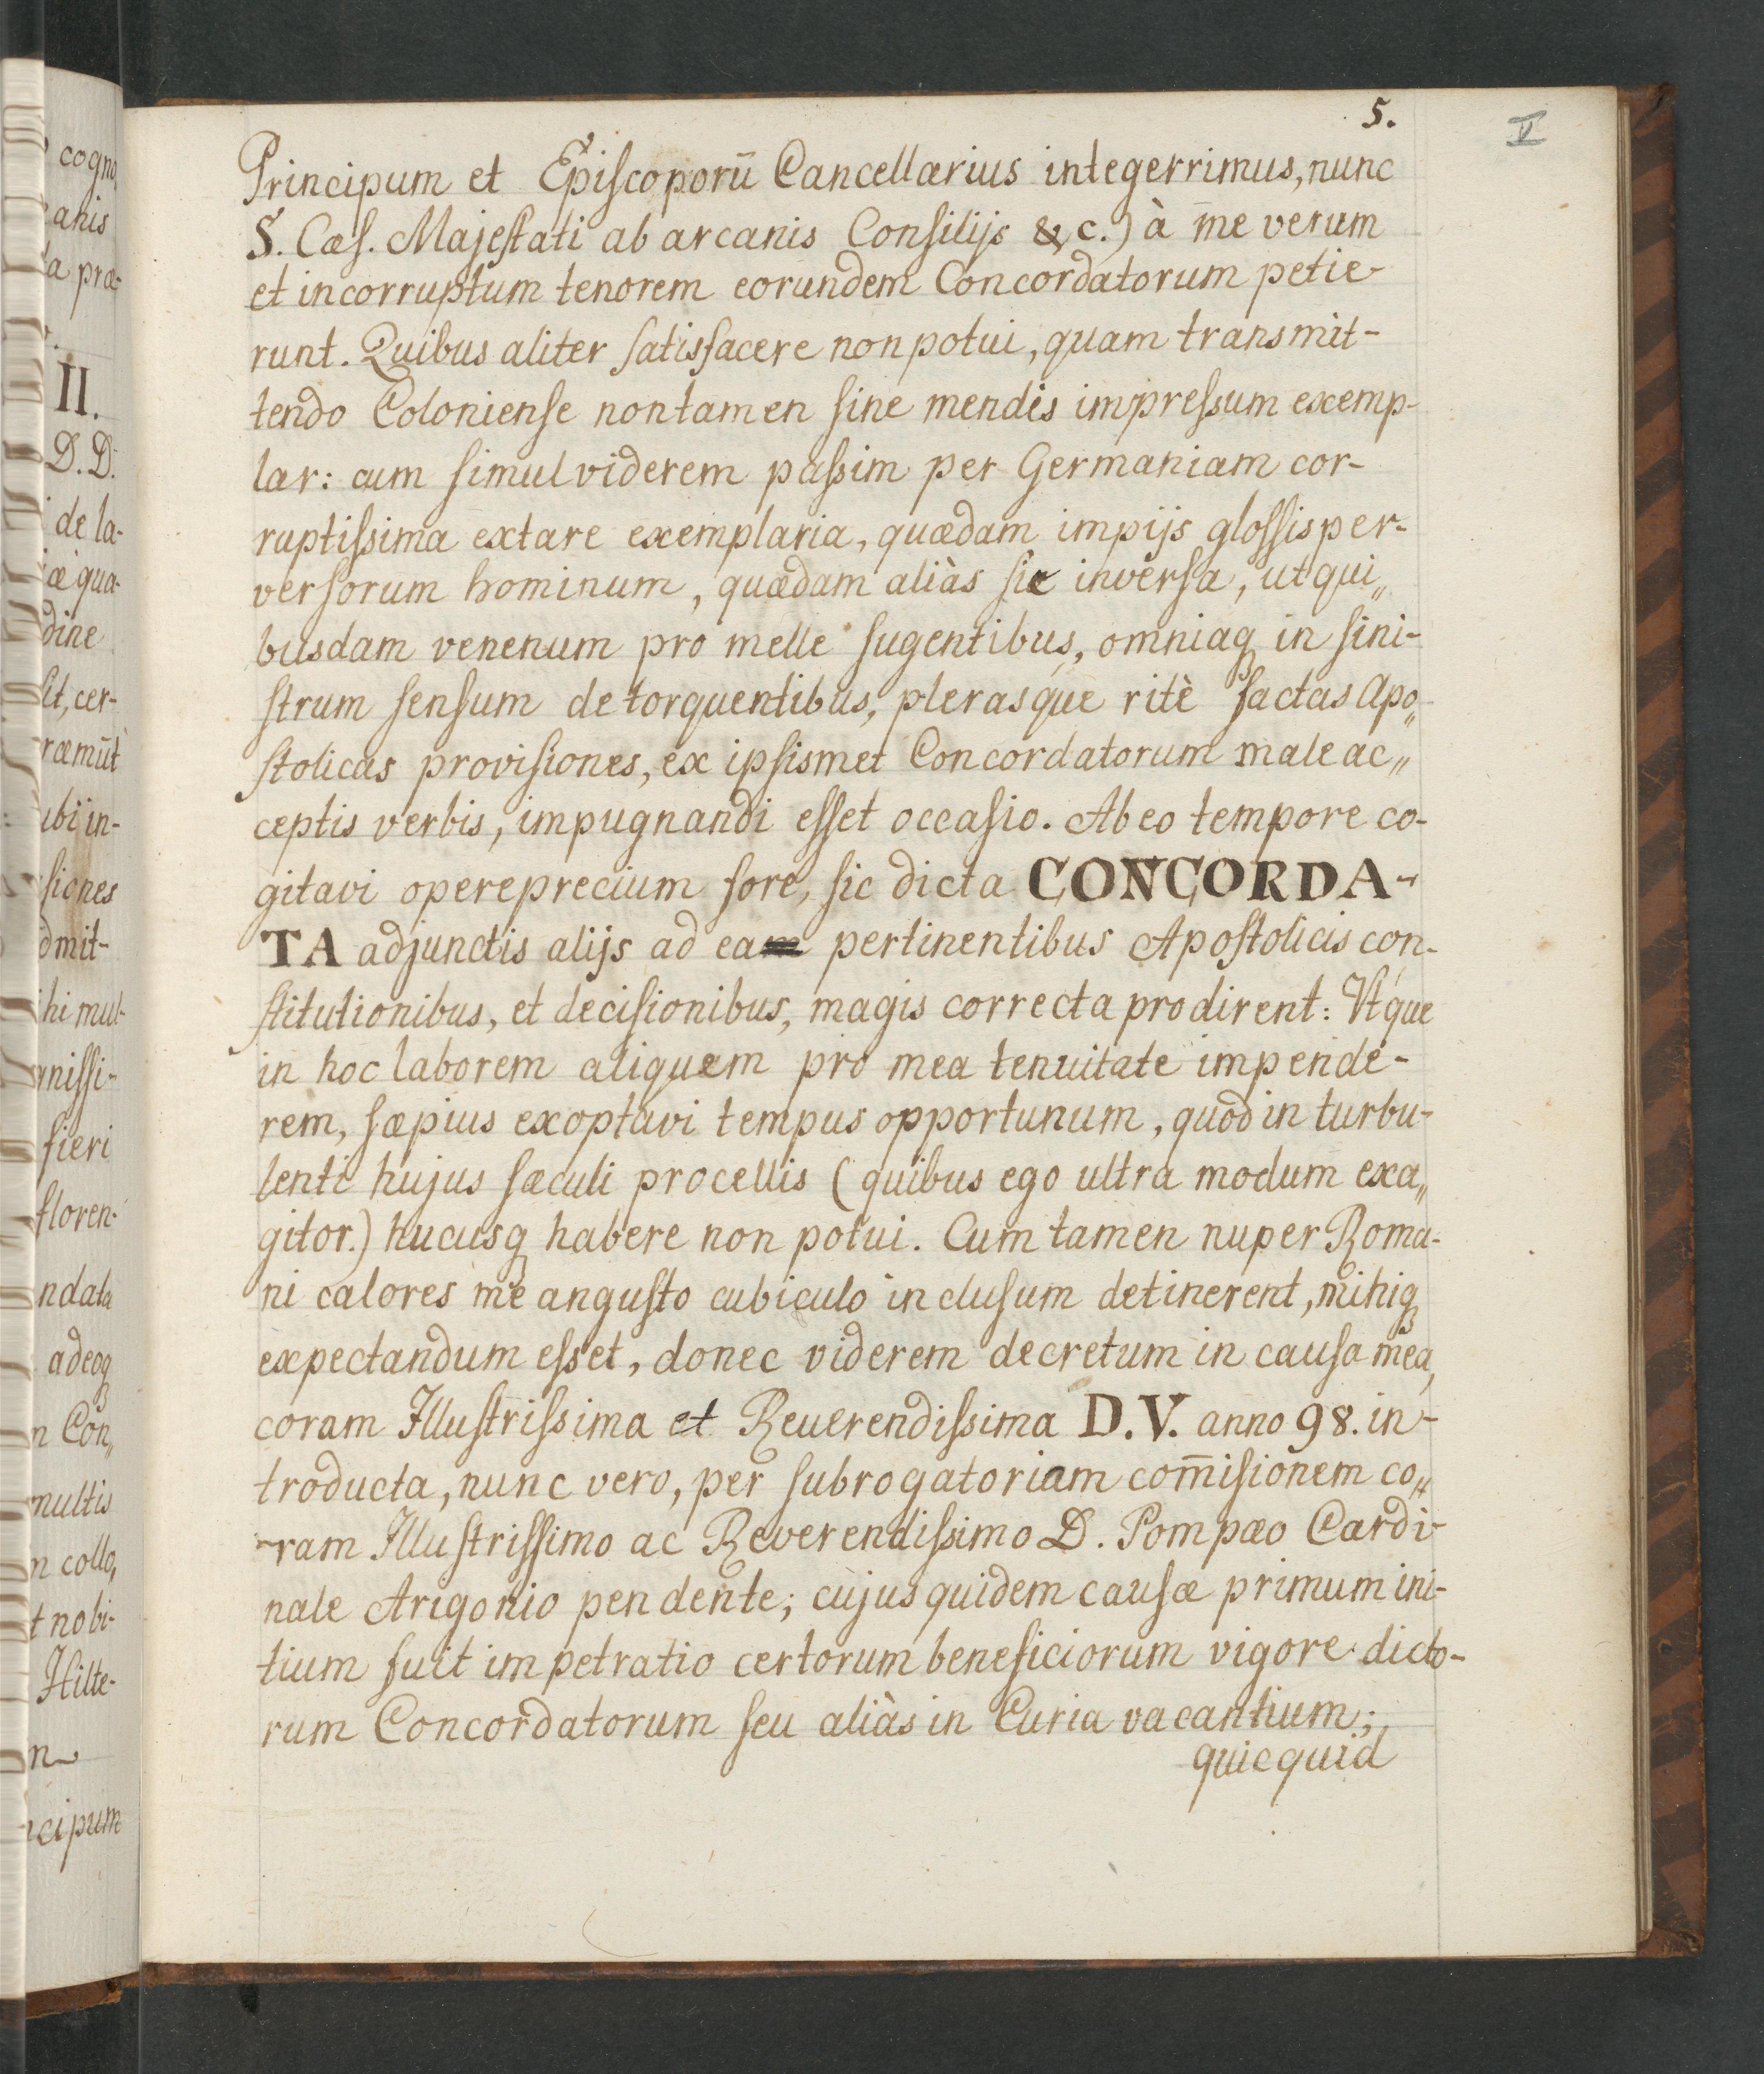 5.
V
Principum et Episcoporū Cancellarius integerrimus, nunc
S. Cæs. Majeſtati ab arcanis Conſilijs &c.) à me verum
et incorruptum tenorem eorundem Concordatorum petie-
runt. Quibus aliter ſatisfacere non potui, quam transmit-
tendo Colonienſe non tamen ſine mendis impreſsum exemp-
lar: cum ſimul viderem paſsim per Germaniam cor-
ruptiſsima extare exemplaria, quædam impijs gloſſis per-
verſorum hominum, quædam aliàs ſic inverſa, ut qui„
busdam venenum pro melle ſugentibus, omniaq in ſini-
ſtrum ſenſum detorquentibus, plerasque ritè factas Apo„
ſtolicas proviſiones, ex ipſismet Concordatorum male ac„
ceptis verbis, impugnandi eſſet occaſio. Ab eo tempore co-
gitavi opereprecium fore, ſic dicta CONCORDA-
TA adjunctis alijs ad ea pertinentibus Apoſtolicis con-
ſtitutionibus, et deciſionibus, magis correcta prodirent: Vt que
in hoc laborem aliquem pro mea tenuitate impende-
rem, ſæpius exoptavi tempus opportunum, quod in turbu-
lenti hujus ſæculi procellis (quibus ego ultra modum exa„
gitor.) hucusq habere non potui. Cum tamen nuper Roma-
ni calores me anguſto cubiculo incluſum detinerent, mihiq
expectandum eſset, donec viderem decretum in cauſa mea,
coram Illuſtriſsima et Reuerendiſsima D.V. anno 98. in-
troducta, nunc vero, per ſubrogatoriam com̄iſionem co„
ram Illuſtriſſimo ac Reverendiſsimo D. Pompæo Cardi-
nale Arigonio pendente; cujus quidem cauſæ primum ini-
tium fuit impetratio certorum beneficiorum vigore dicto-
rum Concordatorum ſeu aliàs in Curia vacantium;
quicquid